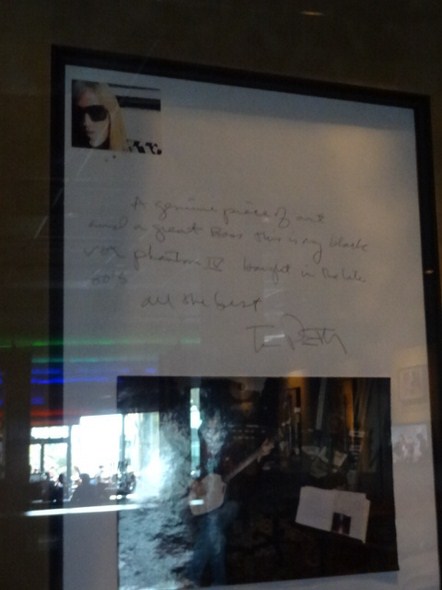 A genuine piece of art
and a great Bass this is my black
vox phantom IV bought in the late
60's
all the best